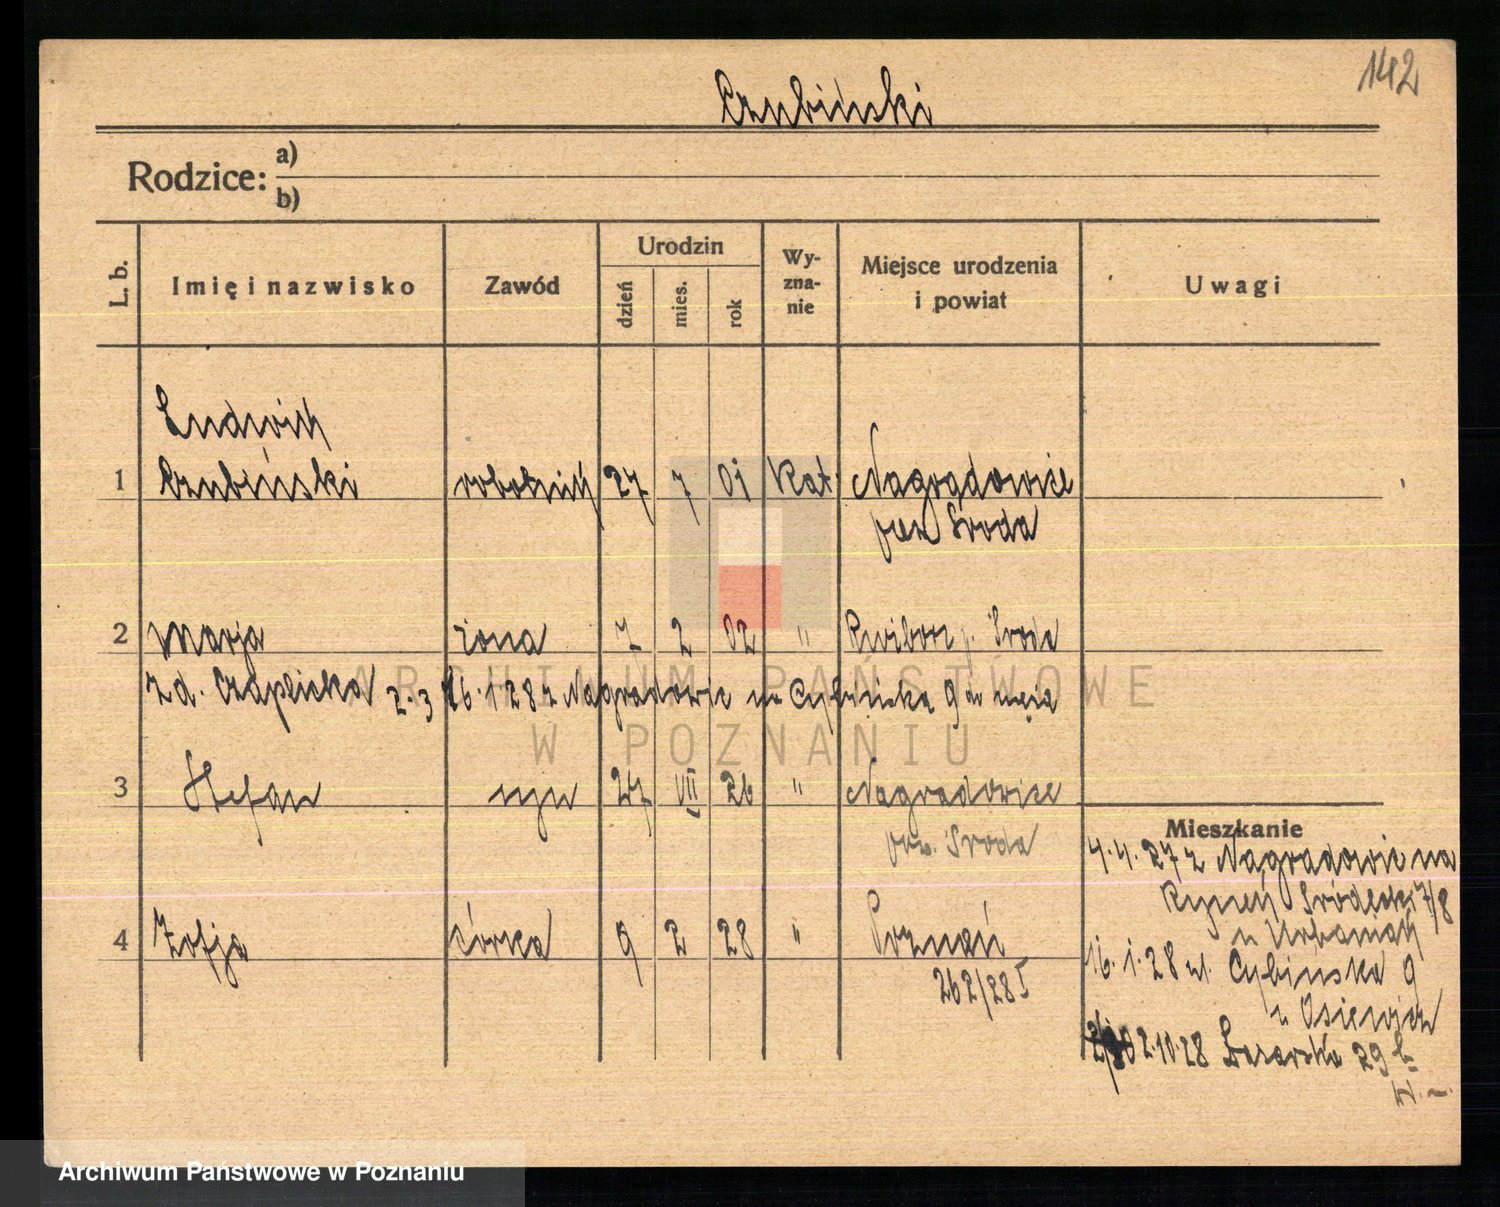 142
Czubiński
Rodzice: a)
b)
L. b. Imię i nazwisko Zawód Urodzin dzień mies. rok Wyznanie Miejsce urodzenia i powiat Uwagi
Ludwik
1 Czubiński robotnik 27 7 01 Kat. Nagradowice
pow. Środa
2 Marja żona 7 2 02 " p. Środa
zd. Czaplicka 2. 3 16.1.28 z Nagradowic na Cybińska 9 do męża
3 Stefan syn 27 VII 26 " Nagradowice
pow. Środa
Mieszkanie
4.4.27 z Nagradowic na
Rynek Śródecki 7/8
u Urbaniak
4 Zofja córka 9 2 28 " Poznań
262/285
16.1.28 ul. Cybińska 9
u Osiewicz
2.10.28 29
ARCHIWUM PAŃSTWOWE
W POZNANIU
Archiwum Państwowe w Poznaniu